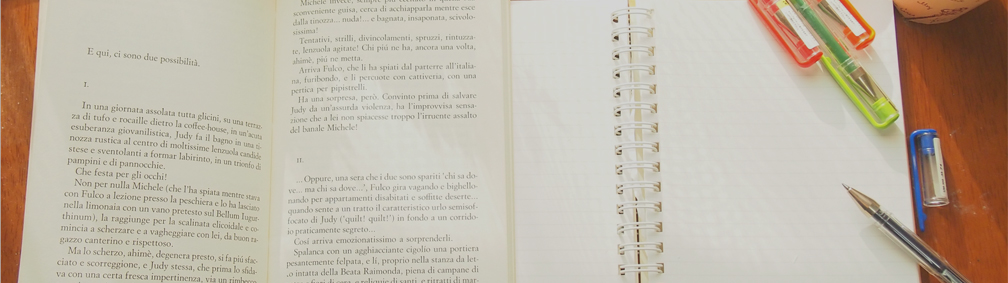 E qui, ci sono due possibilità.
I.
In una giornata assolata tutta glicini, su una terraz-
za di tufo e rocaille dietro la coffee-house, in un'acuta
esuberanza giovanilistica, Judy fa il bagno in una ti-
nozza rustica al centro di moltissime lenzuola candide
stese e sventolanti a formar labirinto, in un trionfo di
pampini e di pannocchie.
Che festa per gli occhi!
Non per nulla Michele (che l'ha spiata mentre stava
con Fulco a lezione presso la peschiera e lo ha lasciato
nella limonaia con un vano pretesto sul Bellum Iugur-
thinum), la raggiunge per la scalinata elicoidale e co-
mincia a scherzare e a vagheggiare con lei, da buon ra-
gazzo canterino e rispettoso.
Ma lo scherzo, ahimè, degenera presto, si fa più sfac-
ciato e scorreggione, e Judy stessa, che prima lo sfida-
va con una certa fresca impertinenza, via un rimbrotto
Michele invece, sempre più
sconveniente guisa, cerca di acchiapparla mentre esce
dalla tinozza... nuda!... e bagnata, insaponata, scivolo-
sissima!
Tentativi, strilli, divincolamenti, spruzzi, rintuzza-
te, lenzuola agitate! Chi più ne ha, ancora una volta,
ahimè, più ne metta.
Arriva Fulco, che li ha spiati dal parterre all'italia-
na, furibondo, e li percuote con cattiveria, con una
pertica per pipistrelli.
Ha una sorpresa, però. Convinto prima di salvare
Judy da un'assurda violenza, ha l'improvvisa sensa-
zione che a lei non spiacesse troppo l'irruente assalto
del banale Michele!
II.
...Oppure, una sera che i due sono spariti 'chi sa do-
ve... ma chi sa dove...?', Fulco gira vagando e bighello-
nando per appartamenti disabitati e soffitte deserte...
quando sente a un tratto il caratteristico urlo semisof-
focato di Judy ('quilt! quilt!') in fondo a un corrido-
io praticamente segreto...
Così arriva emozionatissimo a sorprenderli.
Spalanca con un agghiacciante cigolio una portiera
pesantemente felpata, e lì, proprio nella stanza da let-
to intatta della Beata Raimonda, piena di campane di
fiori di cera, e reliquie di santi, e ritratti di mar-